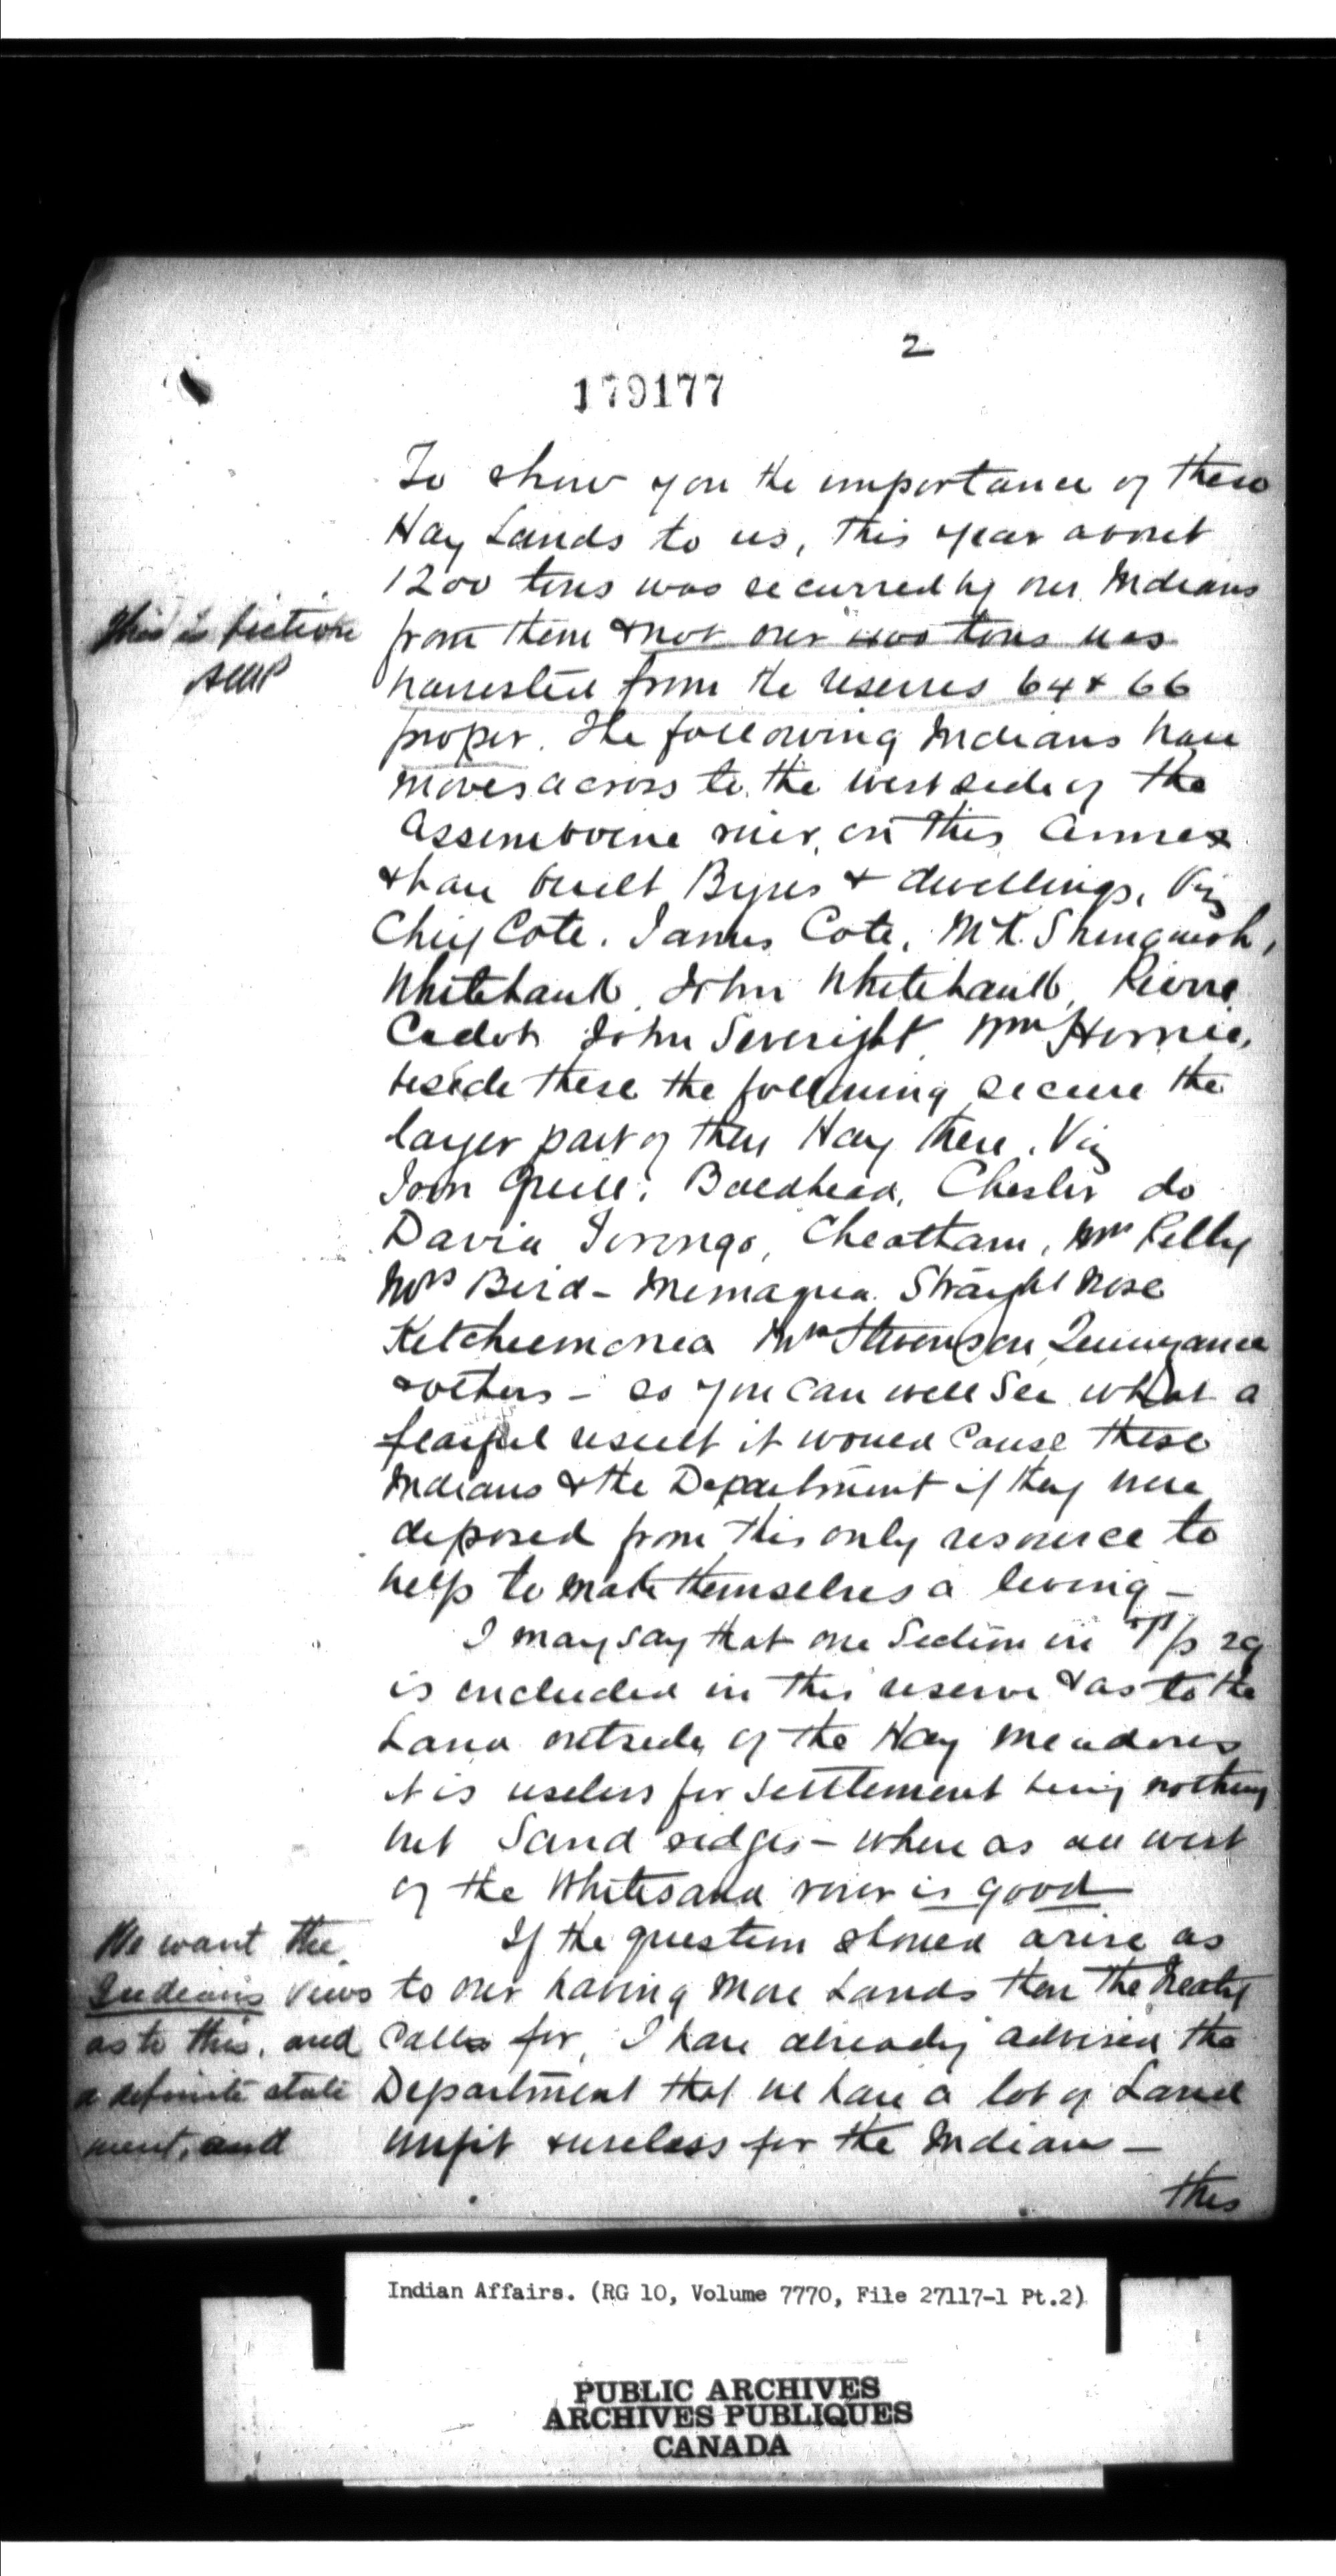 2
179177
To show you the importance of these
Hay Lands to us, this year about
1200 tons was securred by our Indians
from them & not over tons was
harvested from the reserves 64 & 66
proper. The following Indians have
moved across to the west side of the
Assiniboine river, on this Annex
& have built Byres & dwellings, Viz
Chief Cote. James Cote,
Whitehawk, John Whitehawk, Pierre
Cadot John Severight Wm
beside these the following secure the
larger part of their Hay there. Viz
Baldhead, Chesler do
David Cheatham, Mrs Pelly
Mrs Bird - Straight Nose
Mrs Stevenson
& others - so you can well see what a
fearful result it would cause these
Indians & the Department if they were
deposed from this only resource to
help to make themselves a living -
I may say that one Section in Tp 29
is included in this reserve & as to the
Land outside of the Hay meadows
it is useless for settlement being nothing
but Sand ridges - where as all west
of the Whitesand river is good
If the question should arise as
to our having more Lands than the Treaty
Calls for, I have already advised the
Department that we have a lot of Land
unfit & useless for the Indians -
this
This is fiction
We want the
Indians views
as to this, and
a definite state
ment, and
Indian Affairs. (RG 10, Volume 7770, File 27117-1 Pt.2)
PUBLIC ARCHIVES
ARCHIVES PUBLIQUES
CANADA